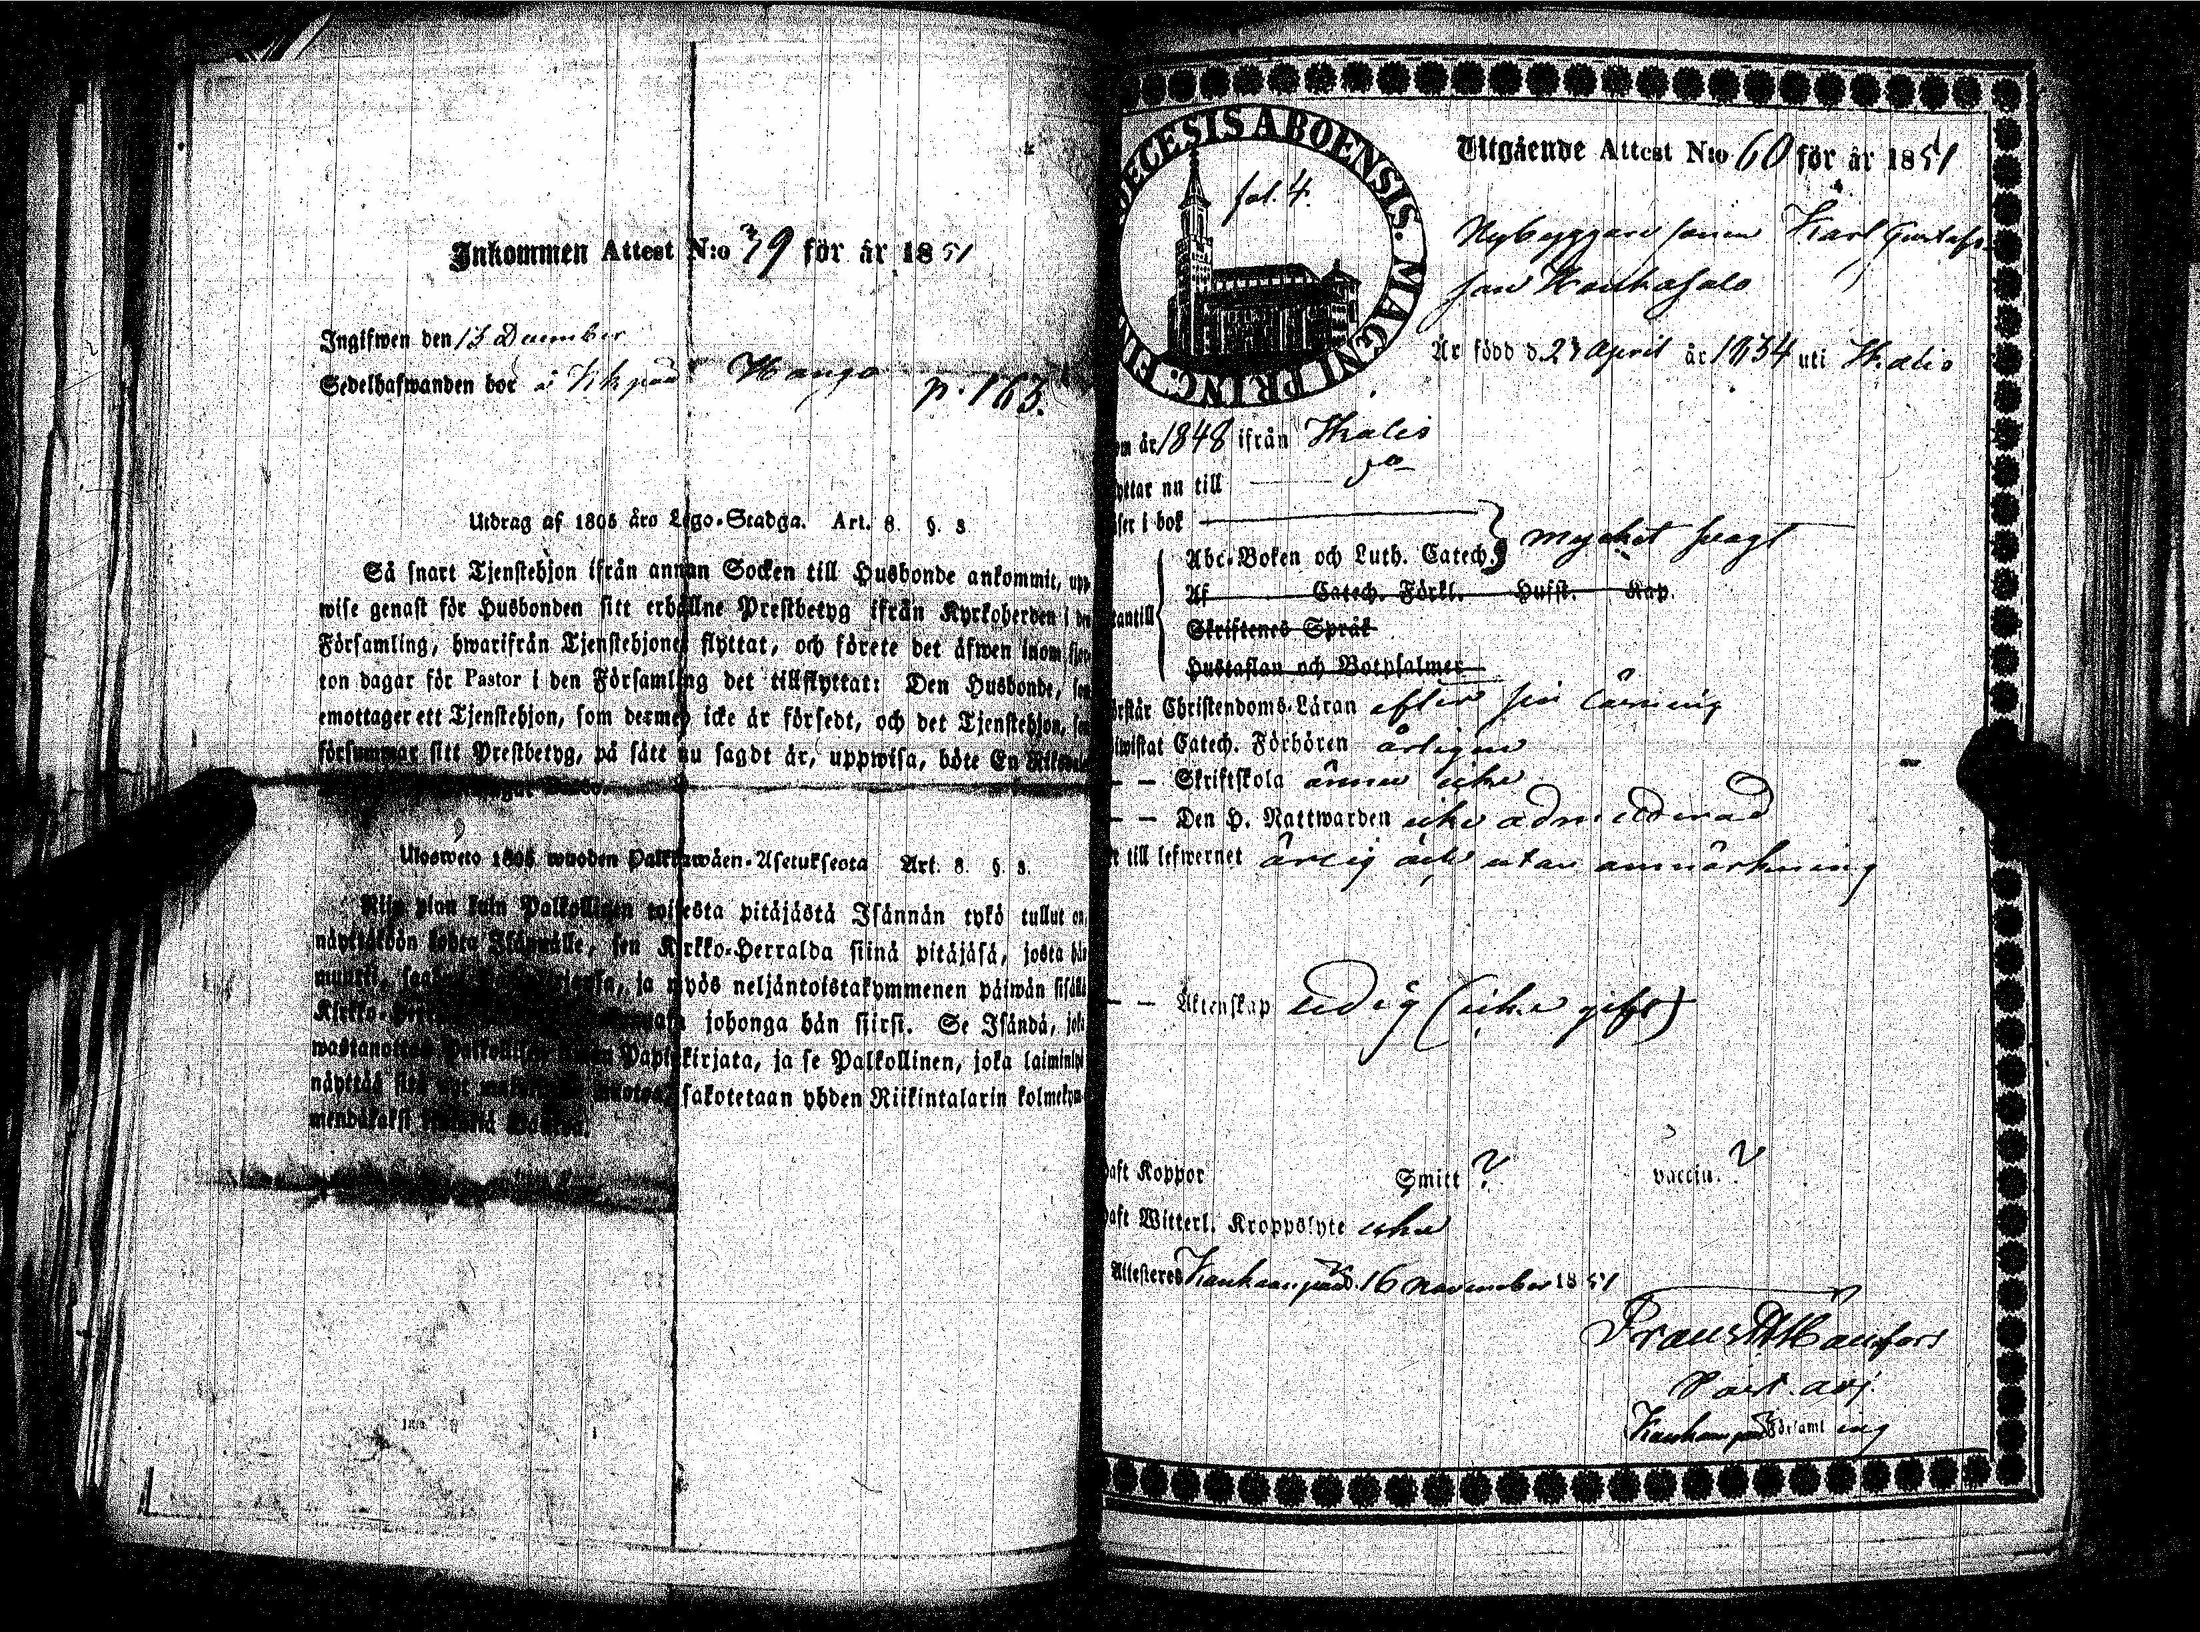 Inkommen Attest N:o 39 för år 1851
Ingifwen den 13 December
Sedelhafwanden bor å p. 163.
Utdrag af 1805 års Lego-Stadga. Art. 8. §. 3
Så snart Tjenstehjon ifrån annan Socken till Husbonde ankommit, upp-
wise genast för Husbonden sitt erhållne Prestbetyg ifrån Kyrkoherden i den
Församling, hwarifrån Tjenstehjonet flyttat, och förete det äfwen inom fjor-
ton dagar för Pastor i den Församling det tillflyttat: Den Husbonde, som
emottager ett Tjenstehjon, som dermed icke är försedt, och det Tjenstehjon, som
försummar sitt Prestbetyg, på sätt nu sagdt är, uppwisa, böte En Riksdaler
Ulosweto 1805 wuoden Palkkawäen-Asetuksesta Art. 8. §. 3.
Niin pian kuin Palkollinen toisesta pitäjästä Isännän tykö tullut on,
näyttäköön kohta Isännälle, sen Kirkko-Herralda siinä pitäjäsä, josta hän
muutti, ja myös neljäntoistakymmenen päiwän sisällä
johonga hän siirsi. Se Isändä, joka
wastanottaa Palkollisen ilman Papinkirjata, ja se Palkollinen, joka laiminlyö
näyttää sakotetaan yhden Riikintalarin kolmekym-
mendäkaksi
DIOECESIS ABOENSIS. MAGNI PRINC. FIN
fol. 4.
Utgående Attest N:o 60 för år 1851
Nybyggare sonen Karl Gustafs
son Kauhasalo
Är född d. 23 April år 1834 uti Ikalis
om år 1848 ifrån Ikalis
yttar nu till
äser i bok
Abc-Boken och Luth. Catech. } mycket swagt
Af Catech. Förkl. Husst. Kap.
antill {
Skriftenes Språk
Hustaflan och Botpsalmer
örstår Christendoms-Läran efter sin läsning
iwistat Catech. Förhören årligen
— — Skriftskola ännu icke
— — Den H. Nattwarden icke admitterad
t till lefwernet ärlig och utan anmärkning
— — Äktenskap ledig (icke gift)
aft Koppor Smitt ? vaccin. ?
aft Witterl. Kroppslyte icke
Attesteres Kankaanpää d. 16 November 1851
Frans
Past. adj.
Kankaanpää Församling